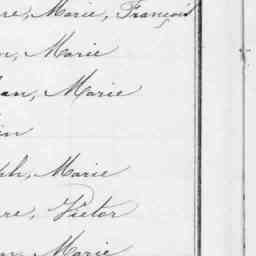 re, Marie, François
n, Marie
an, Marie
in
ph, Marie
re, Victor
n, Marie